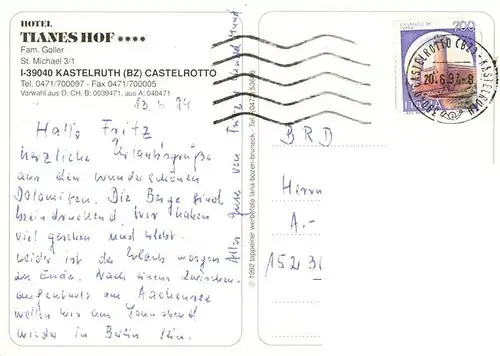 HOTEL
TIANES HOF ★★★★
Fam. Goller
St. Michael 3/1
I-39040 KASTELRUTH (BZ) CASTELROTTO
Tel. 0471/700097 - Fax 0471/700005
Vorwahl aus D. CH. B: 0039471, aus A: 040471
Hallo Fritz
herzliche Urlaubsgrüße
aus den wunderschönen
Dolomiten. Die Berge sind
beeindruckend. Wir haben
viel gesehen und erlebt.
Leider ist der Urlaub morgen
zu Ende. Nach einem Zwischen-
aufenthalt am Aachensee
wollen wir am Sonnabend
wieder in Berlin sein.
Alles gute von
© 1992 tappeiner werbefoto lana-bozen-bruneck - Tel. 0473
700
ITALIA
CASTELROTTO (BZ) - KASTELRUTH
20.6.94-8
39040
BRD
Herrn
A.-